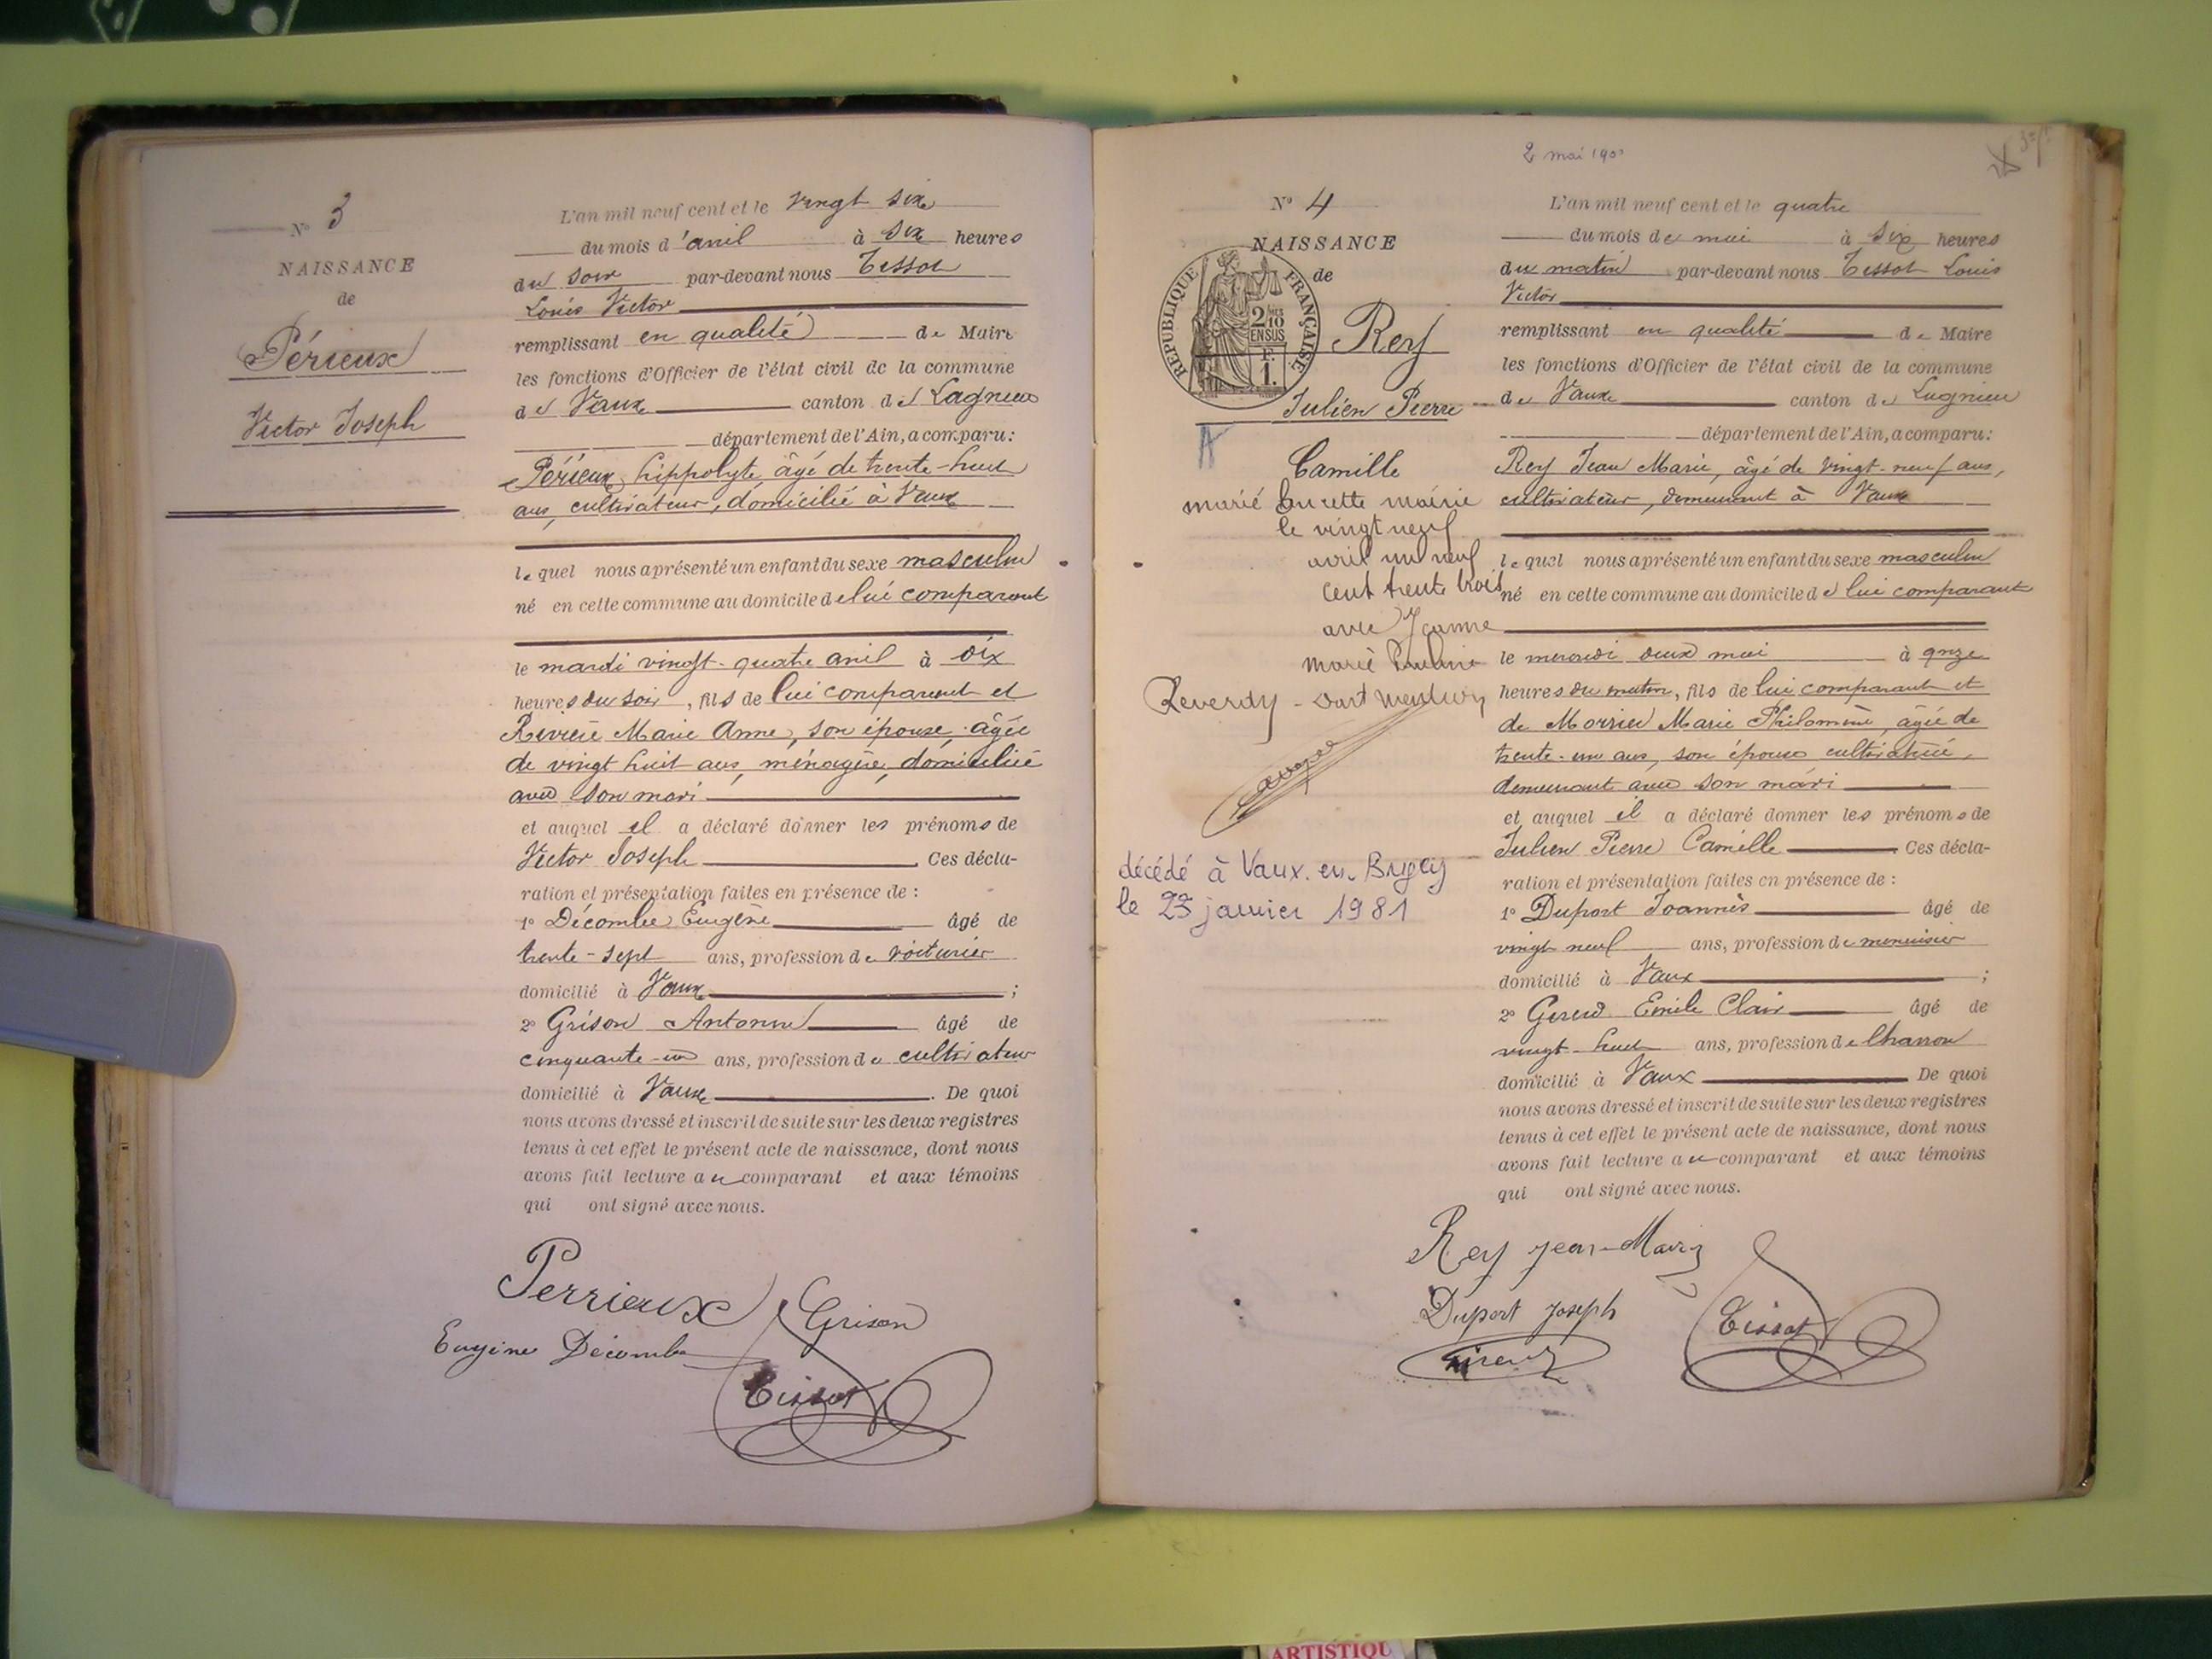 N° 3
NAISSANCE
de
Périeux
Victor Joseph
L'an mil neuf cent et le vingt six
du mois d'avril à six heures
du soir par-devant nous Tissot
Louis Victor
remplissant en qualité de Maire
les fonctions d'Officier de l'état civil de la commune
de Vaux canton de Lagnieu
département de l'Ain, a comparu:
Périeux hippolyte, âgé de trente-huit
ans, cultivateur, domicilié à Vaux
lequel nous a présenté un enfant du sexe masculin
né en cette commune au domicile de lui comparant
le mardi vingt-quatre avril à dix
heures du soir, fils de lui comparant et
Rivière Marie Anne, son épouse, âgée
de vingt huit ans, ménagère, domiciliée
avec son mari
et auquel il a déclaré donner les prénoms de
Victor Joseph. Ces décla-
ration et présentation faites en présence de :
1° Décombe Eugène âgé de
trente-sept ans, profession de voiturier
domicilié à Vaux ;
2° Grison Antoine âgé de
cinquante-un ans, profession de cultivateur
domicilié à Vaux. De quoi
nous avons dressé et inscrit de suite sur les deux registres
tenus à cet effet le présent acte de naissance, dont nous
avons fait lecture au comparant et aux témoins
qui ont signé avec nous.
Perrieux Grison
Eugène Décombe
Tissot
2 mai 1900
N° 4
NAISSANCE
de
REPUBLIQUE FRANÇAISE
2/10 EN SUS
1 F.
Rey
Julien Pierre
Camille
marié en cette mairie
le vingt neuf
avril mil neuf
cent trente trois
avec Jeanne
Marie Pauline
Reverdy - Dont mention
décédé à Vaux-en-Bugey
le 23 janvier 1981
L'an mil neuf cent et le quatre
du mois de mai à six heures
du matin par-devant nous Tissot Louis
Victor
remplissant en qualité de Maire
les fonctions d'Officier de l'état civil de la commune
de Vaux canton de Lagnieu
département de l'Ain, a comparu:
Rey Jean Marie, âgé de vingt-neuf ans,
cultivateur, demeurant à Vaux
lequel nous a présenté un enfant du sexe masculin
né en cette commune au domicile de lui comparant
le mercredi deux mai à onze
heures du matin, fils de lui comparant et
de Marie Philomène, âgée de
trente-un ans, son épouse cultivatrice,
demeurant avec son mari
et auquel il a déclaré donner les prénoms de
Julien Pierre Camille. Ces décla-
ration et présentation faites en présence de :
1° Duport Joannès âgé de
vingt neuf ans, profession de menuisier
domicilié à Vaux ;
2° Emile Clair âgé de
vingt-huit ans, profession de Charron
domicilié à Vaux De quoi
nous avons dressé et inscrit de suite sur les deux registres
tenus à cet effet le présent acte de naissance, dont nous
avons fait lecture au comparant et aux témoins
qui ont signé avec nous.
Rey jean-Marie
Duport Joseph
Tissot
ARTISTIQU